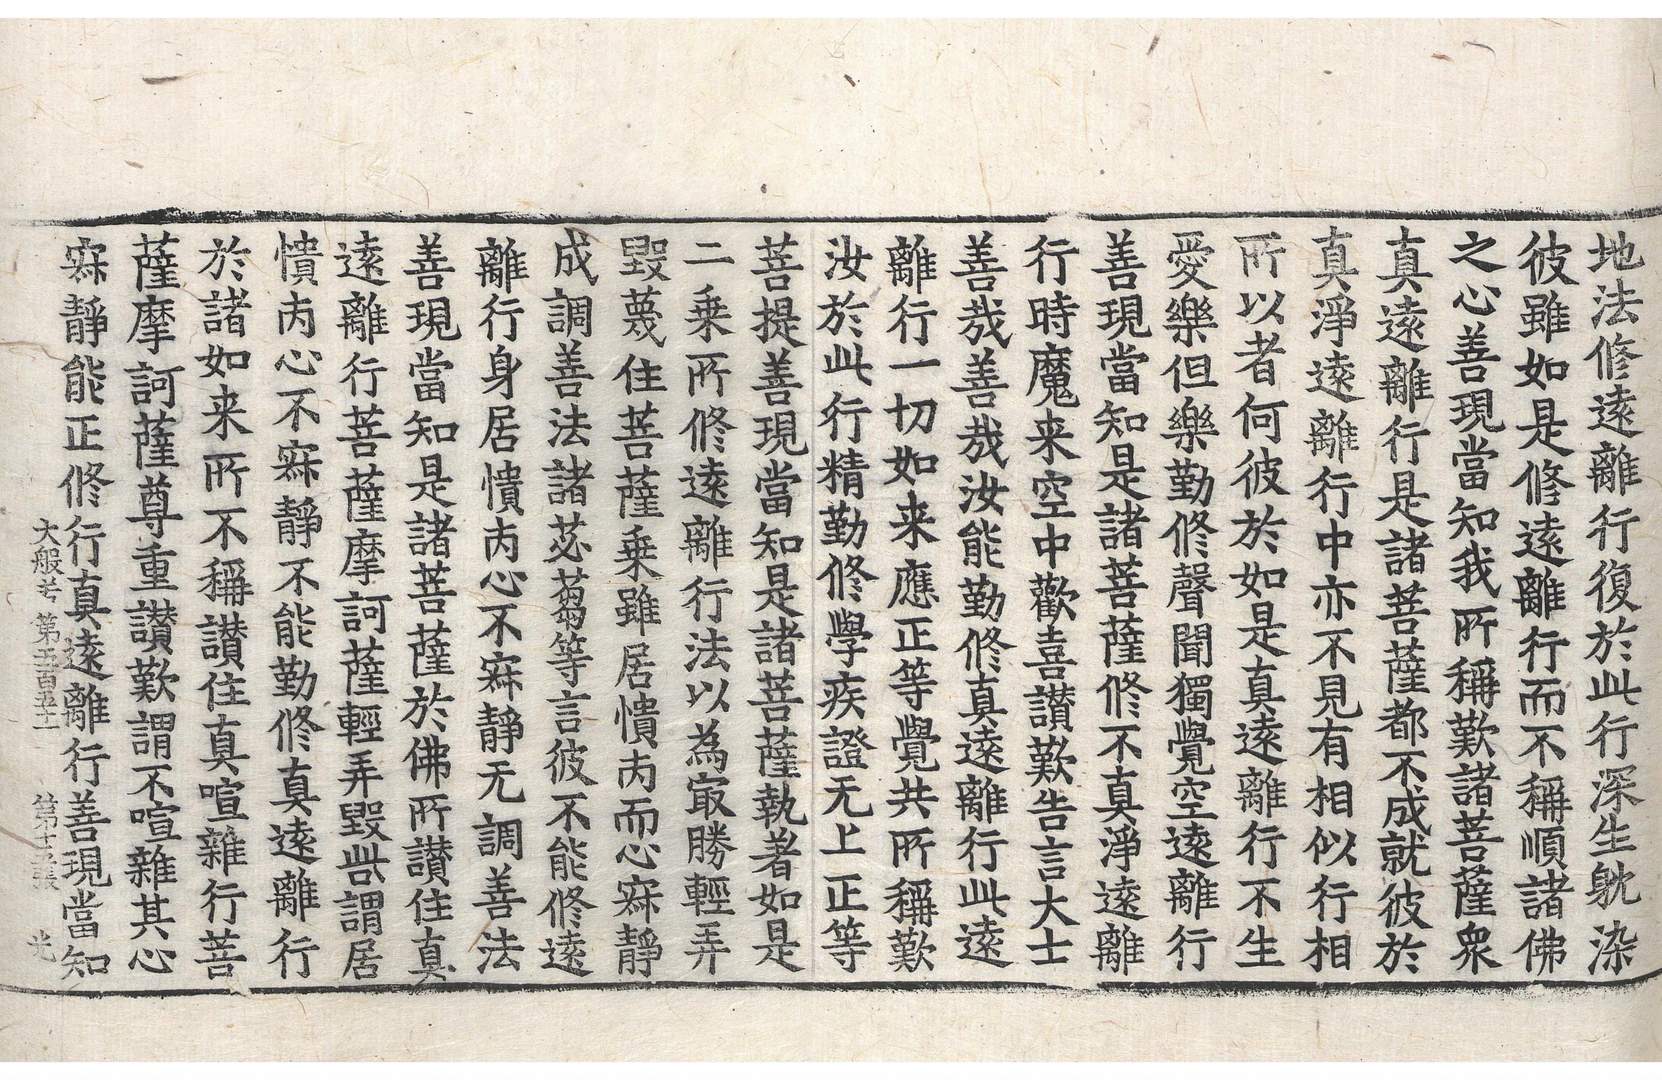 地法修遠離行復於此行深生躭染
彼雖如是修遠離行而不稱順諸佛
之心善現當知我所稱歎諸菩薩衆
真遠離行是諸菩薩都不成就彼於
真淨遠離行中亦不見有相似行相
所以者何彼於如是真遠離行不生
愛樂但樂勤修聲聞獨覺空遠離行
善現當知是諸菩薩修不真淨遠離
行時魔来空中歡喜讃歎告言大士
善哉善哉汝能勤修真遠離行此遠
離行一切如来應正等覺共所稱歎
汝於此行精勤修學疾證无上正等
菩提善現當知是諸菩薩執著如是
二乗所修遠離行法以為㝡勝輕弄
毀蔑住菩薩乗雖居憒丙而心寂靜
成調善法諸苾芻等言彼不能修遠
離行身居憒丙心不寂靜无調善法
善現當知是諸菩薩於佛所讃住真
遠離行菩薩摩訶薩輕弄毀呰謂居
憒丙心不寂靜不能勤修真遠離行
於諸如来所不稱讃住真喧雜行菩
薩摩訶薩尊重讃歎謂不喧雜其心
寂靜能正修行真遠離行善現當知
大般若 第五百五十一 第十五張 光